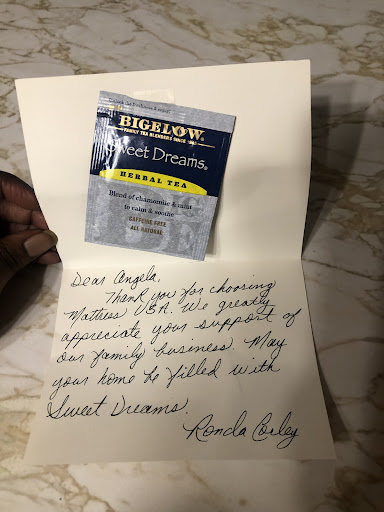 BIGELOW®
FAMILY TEA BLENDERS SINCE 1945
Sweet Dreams®
HERBAL TEA
Blend of chamomile & mint
to calm & soothe
CAFFEINE FREE
ALL NATURAL
Dear Angela,
Thank you for choosing
Mattress USA. We greatly
appreciate your support of
our family business. May
your home be filled with
Sweet Dreams.
Ronda Corley